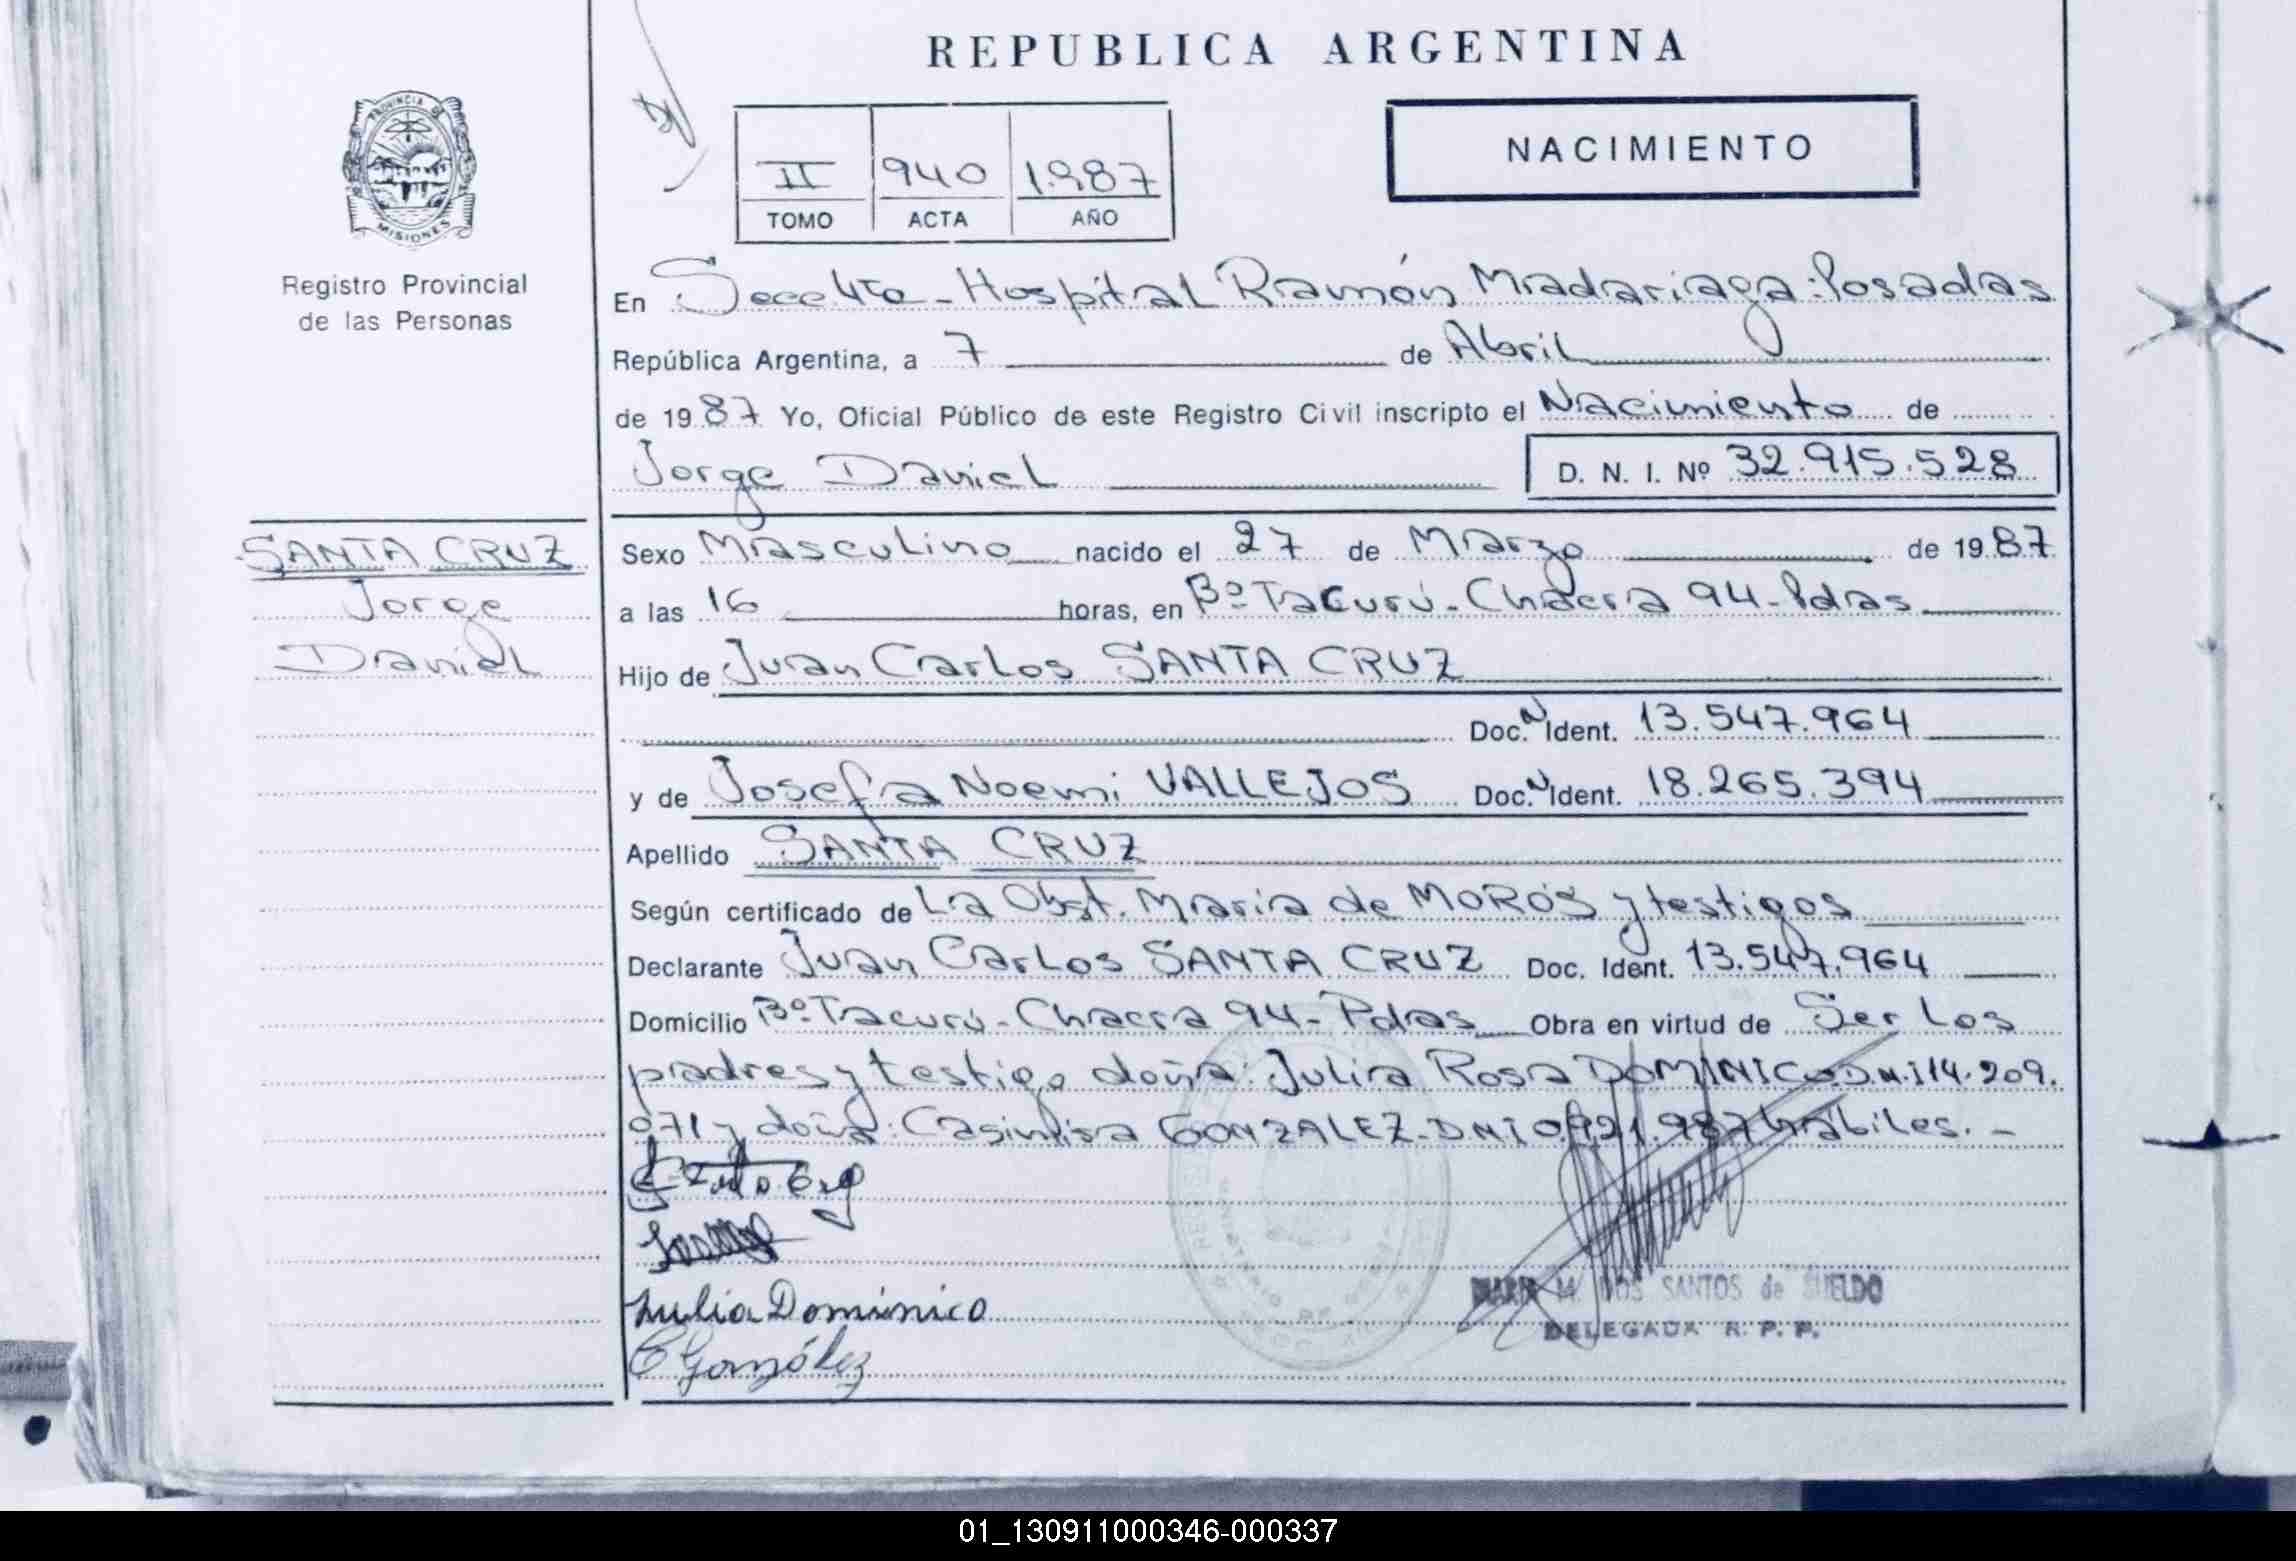 REPUBLICA ARGENTINA
PROVINCIA D
MISIONES
Registro Provincial
de las Personas
II 940 1.987
TOMO ACTA AÑO
NACIMIENTO
En Secc 4ta - Hospital Ramón Madariaga: Posadas
República Argentina, a 7 de Abril
de 1987 Yo, Oficial Público de este Registro Civil inscripto el Nacimiento de
Jorge Daniel D. N. I. Nº 32.915.528
SANTA CRUZ
Jorge
Daniel
Sexo Masculino nacido el 27 de Marzo de 1987
a las 16 horas, en Bº Tacurú - Chacra 94 - Pdas
Hijo de Juan Carlos SANTA CRUZ
Doc. N Ident. 13.547.964
y de Josefa Noemi VALLEJOS Doc. N Ident. 18.265.394
Apellido SANTA CRUZ
Según certificado de La Obst. Maria de MOROS y testigos
Declarante Juan Carlos SANTA CRUZ Doc. Ident. 13.547.964
Domicilio Bº Tacurú - Chacra 94 - Pdas Obra en virtud de Ser los
padres y testigo doña: Julia Rosa DOMINICO D.N.I 14.209.
071 y doña: Casimira GONZALEZ - DNI 0.921.987 hábiles. -
Julia Dominico
C González
M. DOS SANTOS de SUELDO
DELEGADA R. P. P.
01_130911000346-000337